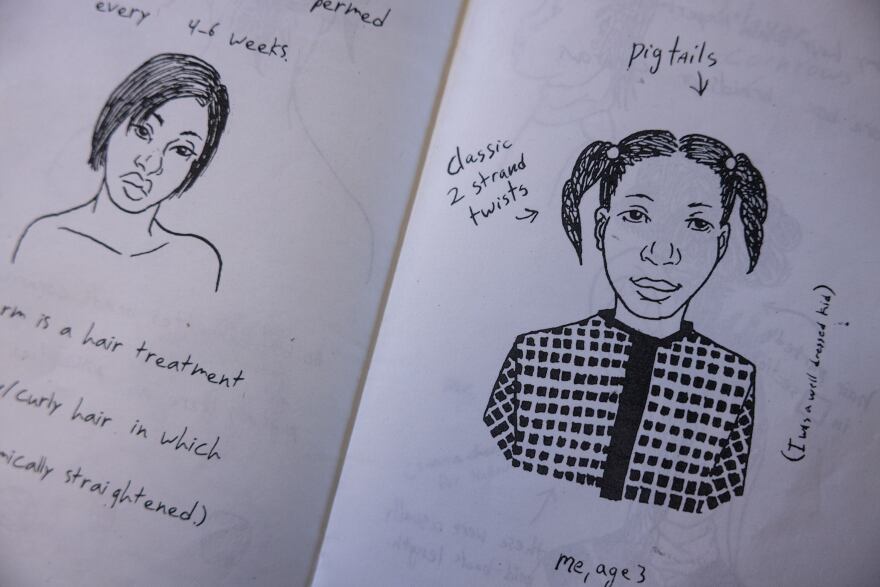 every
permed
4-6 weeks.
rm is a hair treatment
/curly hair in which
mically straightened.)
pigtails
classic
2 strand
twists
(I was a well dressed kid)
me, age 3